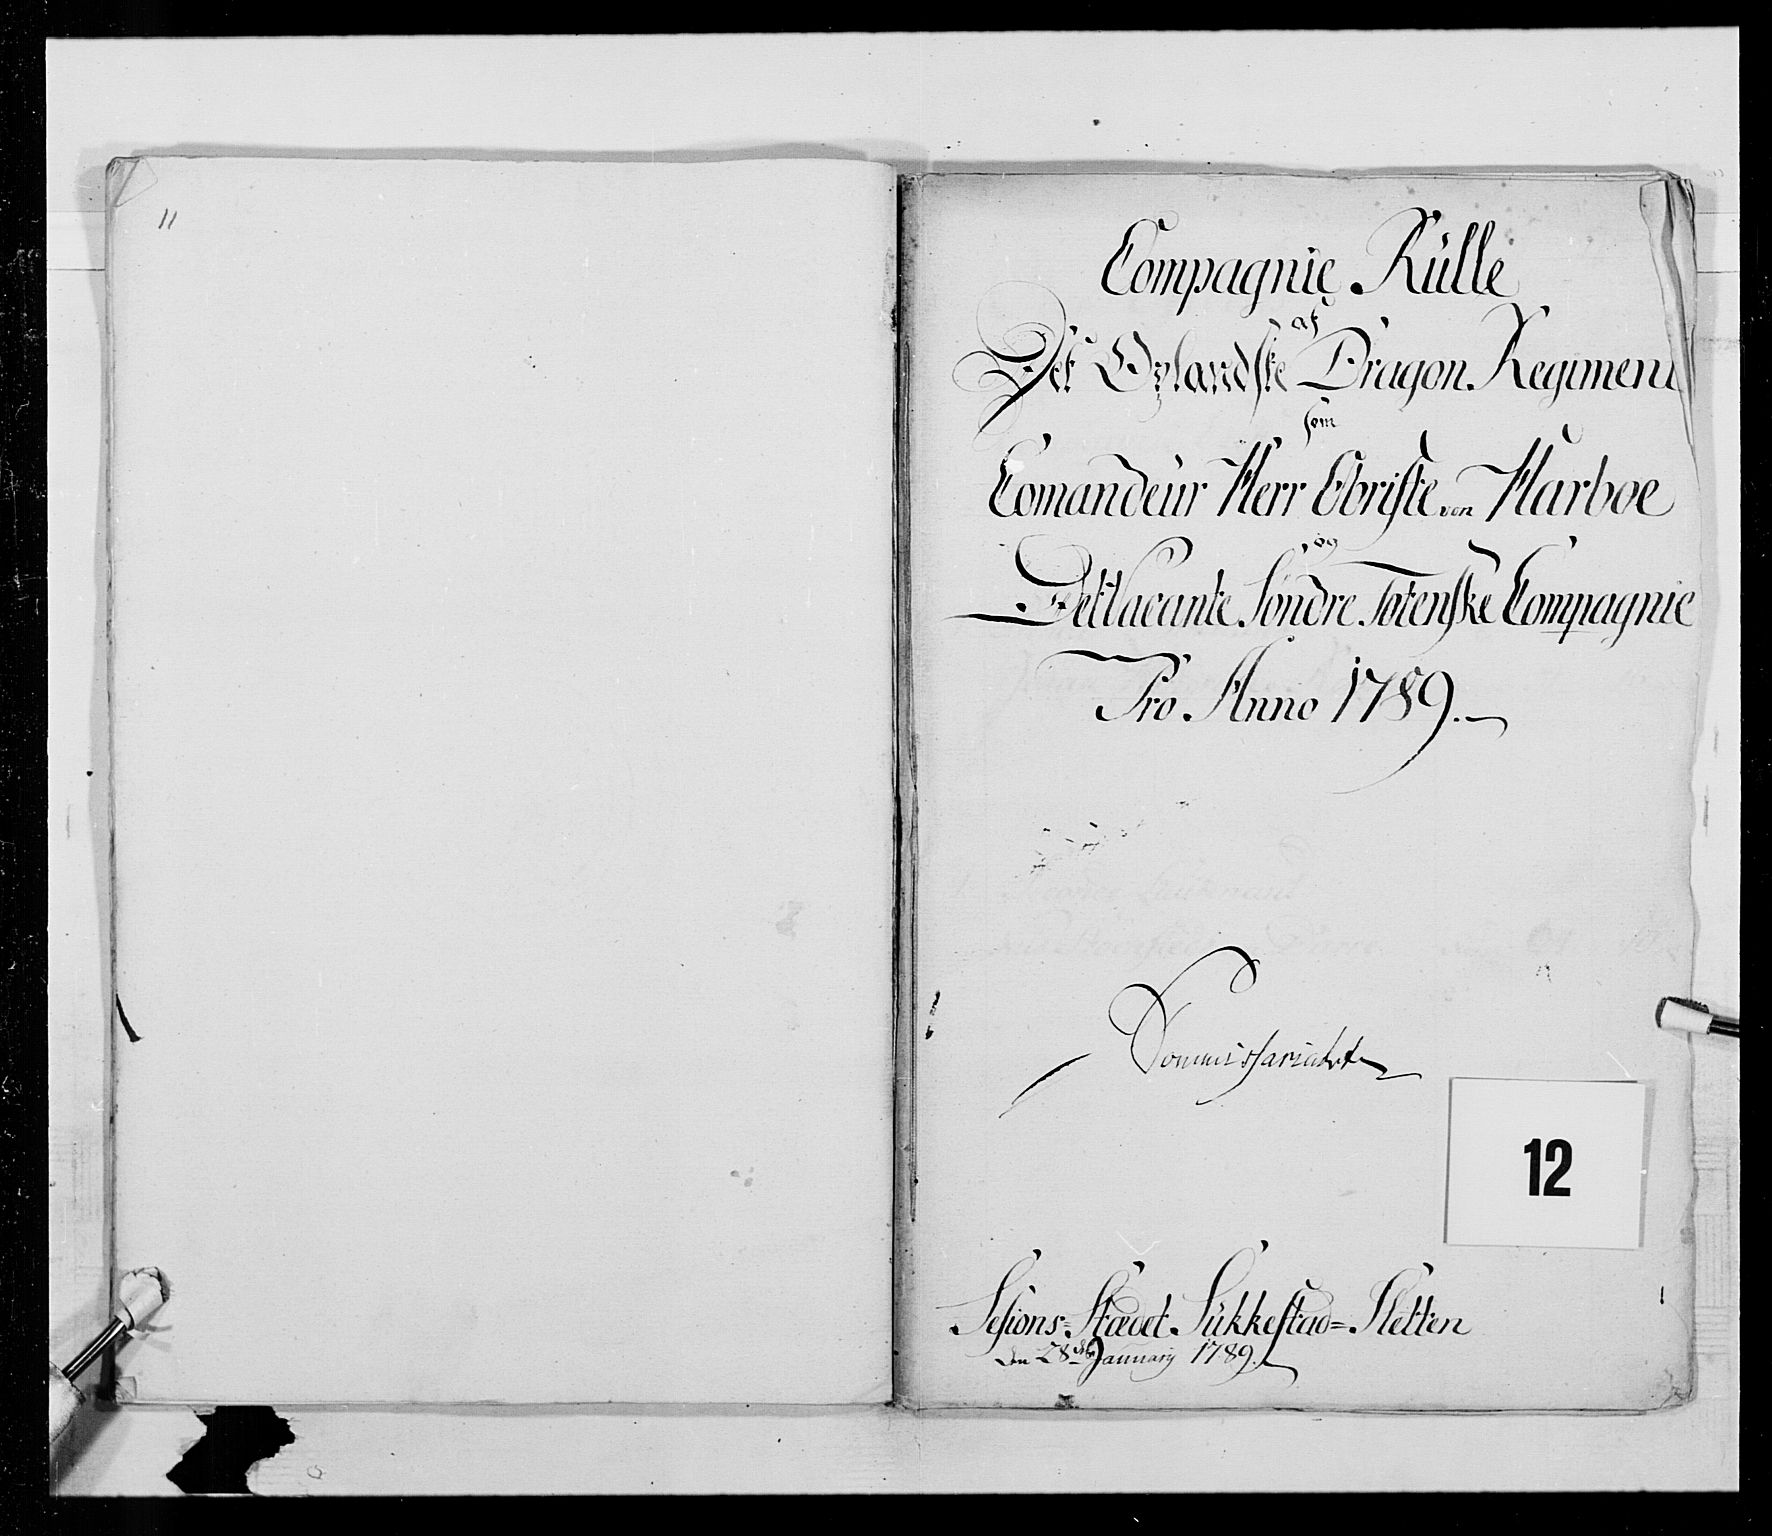 11
Compagnie Rülle
af
Det Oplandske Dragon Regiment
som
Comandeur Herr Obriste von Harboe
og
Det Vacante Söndre Totenske Compagnie
Pro Anno 1789.
Commissariatet
12
Sesions-Stædet Sükkestad-Sletten
den 28de January 1789.